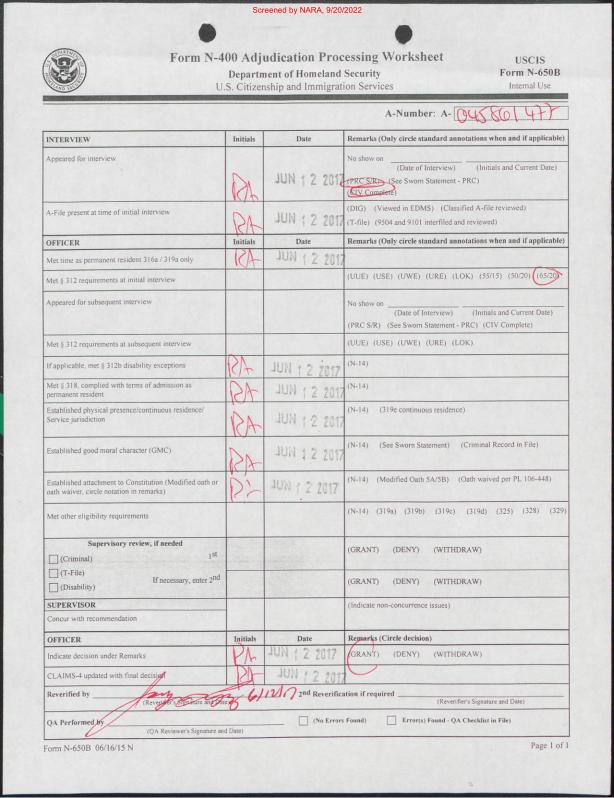 Screened by NARA, 9/20/2022
Form N-400 Adjudication Processing Worksheet
Department of Homeland Security
U.S. Citizenship and Immigration Services
USCIS
Form N-650B
Internal Use
A-Number: A- 045861477
INTERVIEW Initials Date Remarks (Only circle standard annotations when and if applicable)
Appeared for interview RA JUN 12 2017 No show on
(Date of Interview) (Initials and Current Date)
(PRC S/R) (See Sworn Statement - PRC)
(CIV Complete)
A-File present at time of initial interview RA JUN 12 2017 (DIG) (Viewed in EDMS) (Classified A-file reviewed)
(T-file) (9504 and 9101 interfiled and reviewed)
OFFICER Initials Date Remarks (Only circle standard annotations when and if applicable)
Met time as permanent resident 316a / 319a only RA JUN 12 2017
Met § 312 requirements at initial interview (UUE) (USE) (UWE) (URE) (LOK) (55/15) (50/20) (65/20)
Appeared for subsequent interview No show on
(Date of Interview) (Initials and Current Date)
(PRC S/R) (See Sworn Statement - PRC) (CIV Complete)
Met § 312 requirements at subsequent interview (UUE) (USE) (UWE) (URE) (LOK)
If applicable, met § 312b disability exceptions RA JUN 12 2017 (N-14)
Met § 318, complied with terms of admission as
permanent resident RA JUN 12 2017 (N-14)
Established physical presence/continuous residence/
Service jurisdiction RA JUN 12 2017 (N-14) (319e continuous residence)
Established good moral character (GMC) RA JUN 12 2017 (N-14) (See Sworn Statement) (Criminal Record in File)
Established attachment to Constitution (Modified oath or
oath waiver, circle notation in remarks) RA JUN 12 2017 (N-14) (Modified Oath 5A/5B) (Oath waived per PL 106-448)
Met other eligibility requirements (N-14) (319a) (319b) (319c) (319d) (325) (328) (329)
Supervisory review, if needed
(Criminal) 1st (GRANT) (DENY) (WITHDRAW)
(T-File)
(Disability) If necessary, enter 2nd (GRANT) (DENY) (WITHDRAW)
SUPERVISOR (Indicate non-concurrence issues)
Concur with recommendation
OFFICER Initials Date Remarks (Circle decision)
Indicate decision under Remarks RA JUN 12 2017 (GRANT) (DENY) (WITHDRAW)
CLAIMS-4 updated with final decision RA JUN 12 2017
Reverified by 6/12/17 2nd Reverification if required
(Reverifier's Signature and Date) (Reverifier's Signature and Date)
QA Performed by (No Errors Found) Error(s) Found - QA Checklist in File)
(QA Reviewer's Signature and Date)
Form N-650B 06/16/15 N Page 1 of 1